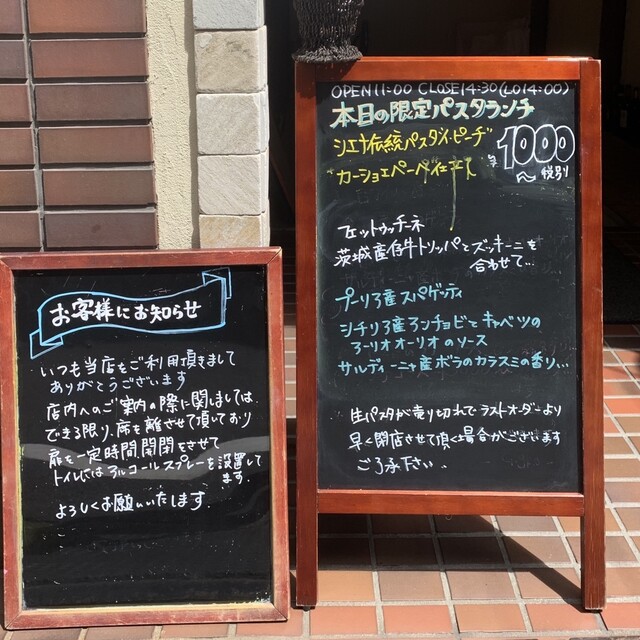 お客様にお知らせ
いつも当店をご利用頂きまして
ありがとうございます
店内へのご案内の際に関しましては、
できる限り、席を離させて頂いており
扉を一定時間、開閉をさせて
トイレにはアルコールスプレーを設置して
ます
よろしくお願いいたします
OPEN 11:00 CLOSE 14:30 (LO 14:00)
本日の限定パスタランチ
シエナ伝統パスタ"ピーチ"
"カーショエペーペ"仕立て
¥1000〜
税別
フェットゥッチーネ
茨城産仔牛トリッパとズッキーニを
合わせて...
プーリア産スパゲッティ
シチリア産アンチョビとキャベツの
アーリオオーリオのソース
サルディーニャ産ボラのカラスミの香り...
生パスタが売り切れでラストオーダーより
早く閉店させて頂く場合がございます
ご了承下さい